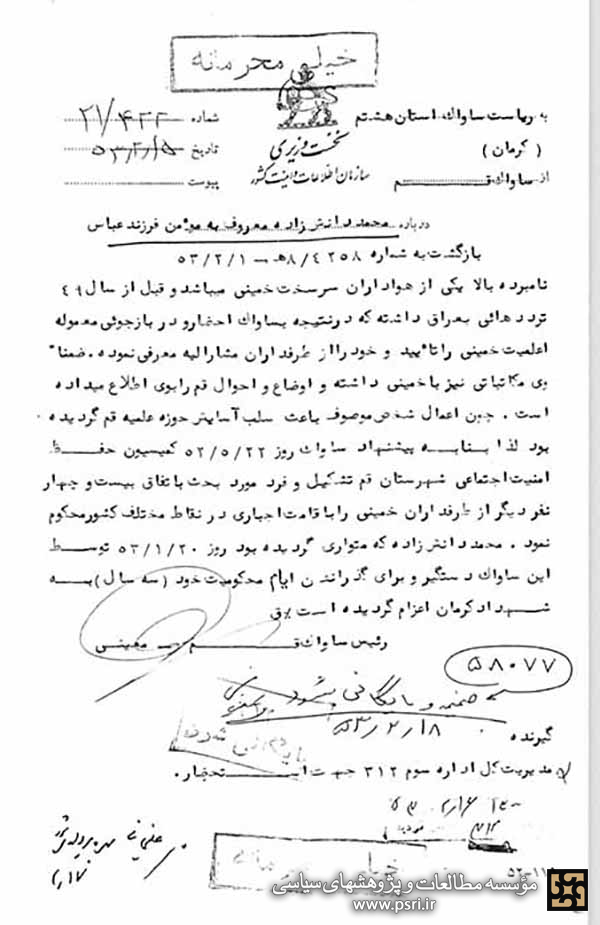 خیلی محرمانه
به ریاست ساواک استان هشتم
( کرمان )
از ساواک قم
نخست وزیری
سازمان اطلاعات و امنیت کشور
شماره ۲۱/۴۲۲
تاریخ ۵۳/۲/۵
پیوست
درباره محمد دانش زاده معروف به مؤمن فرزند عباس
بازگشت به شماره ۸/۴۲۵۸ هـ – ۵۳/۲/۱
نامبرده بالا یکی از هواداران سرسخت خمینی میباشد و قبل از سال ۴۹
تردد هائی بعراق داشته که در نتیجه بساواک احضار و در بازجوئی معموله
اعلمیت خمینی را تائید و خود را از طرفداران مشارالیه معرفی نموده . ضمنا"
وی مکاتباتی نیز با خمینی داشته و اوضاع و احوال قم را بوی اطلاع میداده
است . چون اعمال شخص موصوف باعث سلب آسایش حوزه علمیه قم گردیده
بود لذا بنا به پیشنهاد ساواک روز ۵۲/۵/۲۲ کمیسیون حفظ
امنیت اجتماعی شهرستان قم تشکیل و فرد مورد بحث باتفاق بیست و چهار
نفر دیگر از طرفداران خمینی را باقامت اجباری در نقاط مختلف کشور محکوم
نمود . محمد دانش زاده که متواری گردیده بود روز ۵۳/۱/۲۰ توسط
این ساواک دستگیر و برای گذراندن ایام محکومیت خود ( سه سال ) به
شهداد کرمان اعزام گردیده است
رئیس ساواک قم معینی
۵۸۰۷۷
ضمیمه و بایگانی شود
۵۳/۲/۱۸
گیرنده
مدیریت کل اداره سوم ۳۱۲ جهت استحضار .
بایگانی شد
خیلی محرمانه
مؤسسه مطالعات و پژوهشهای سیاسی
www.psri.ir